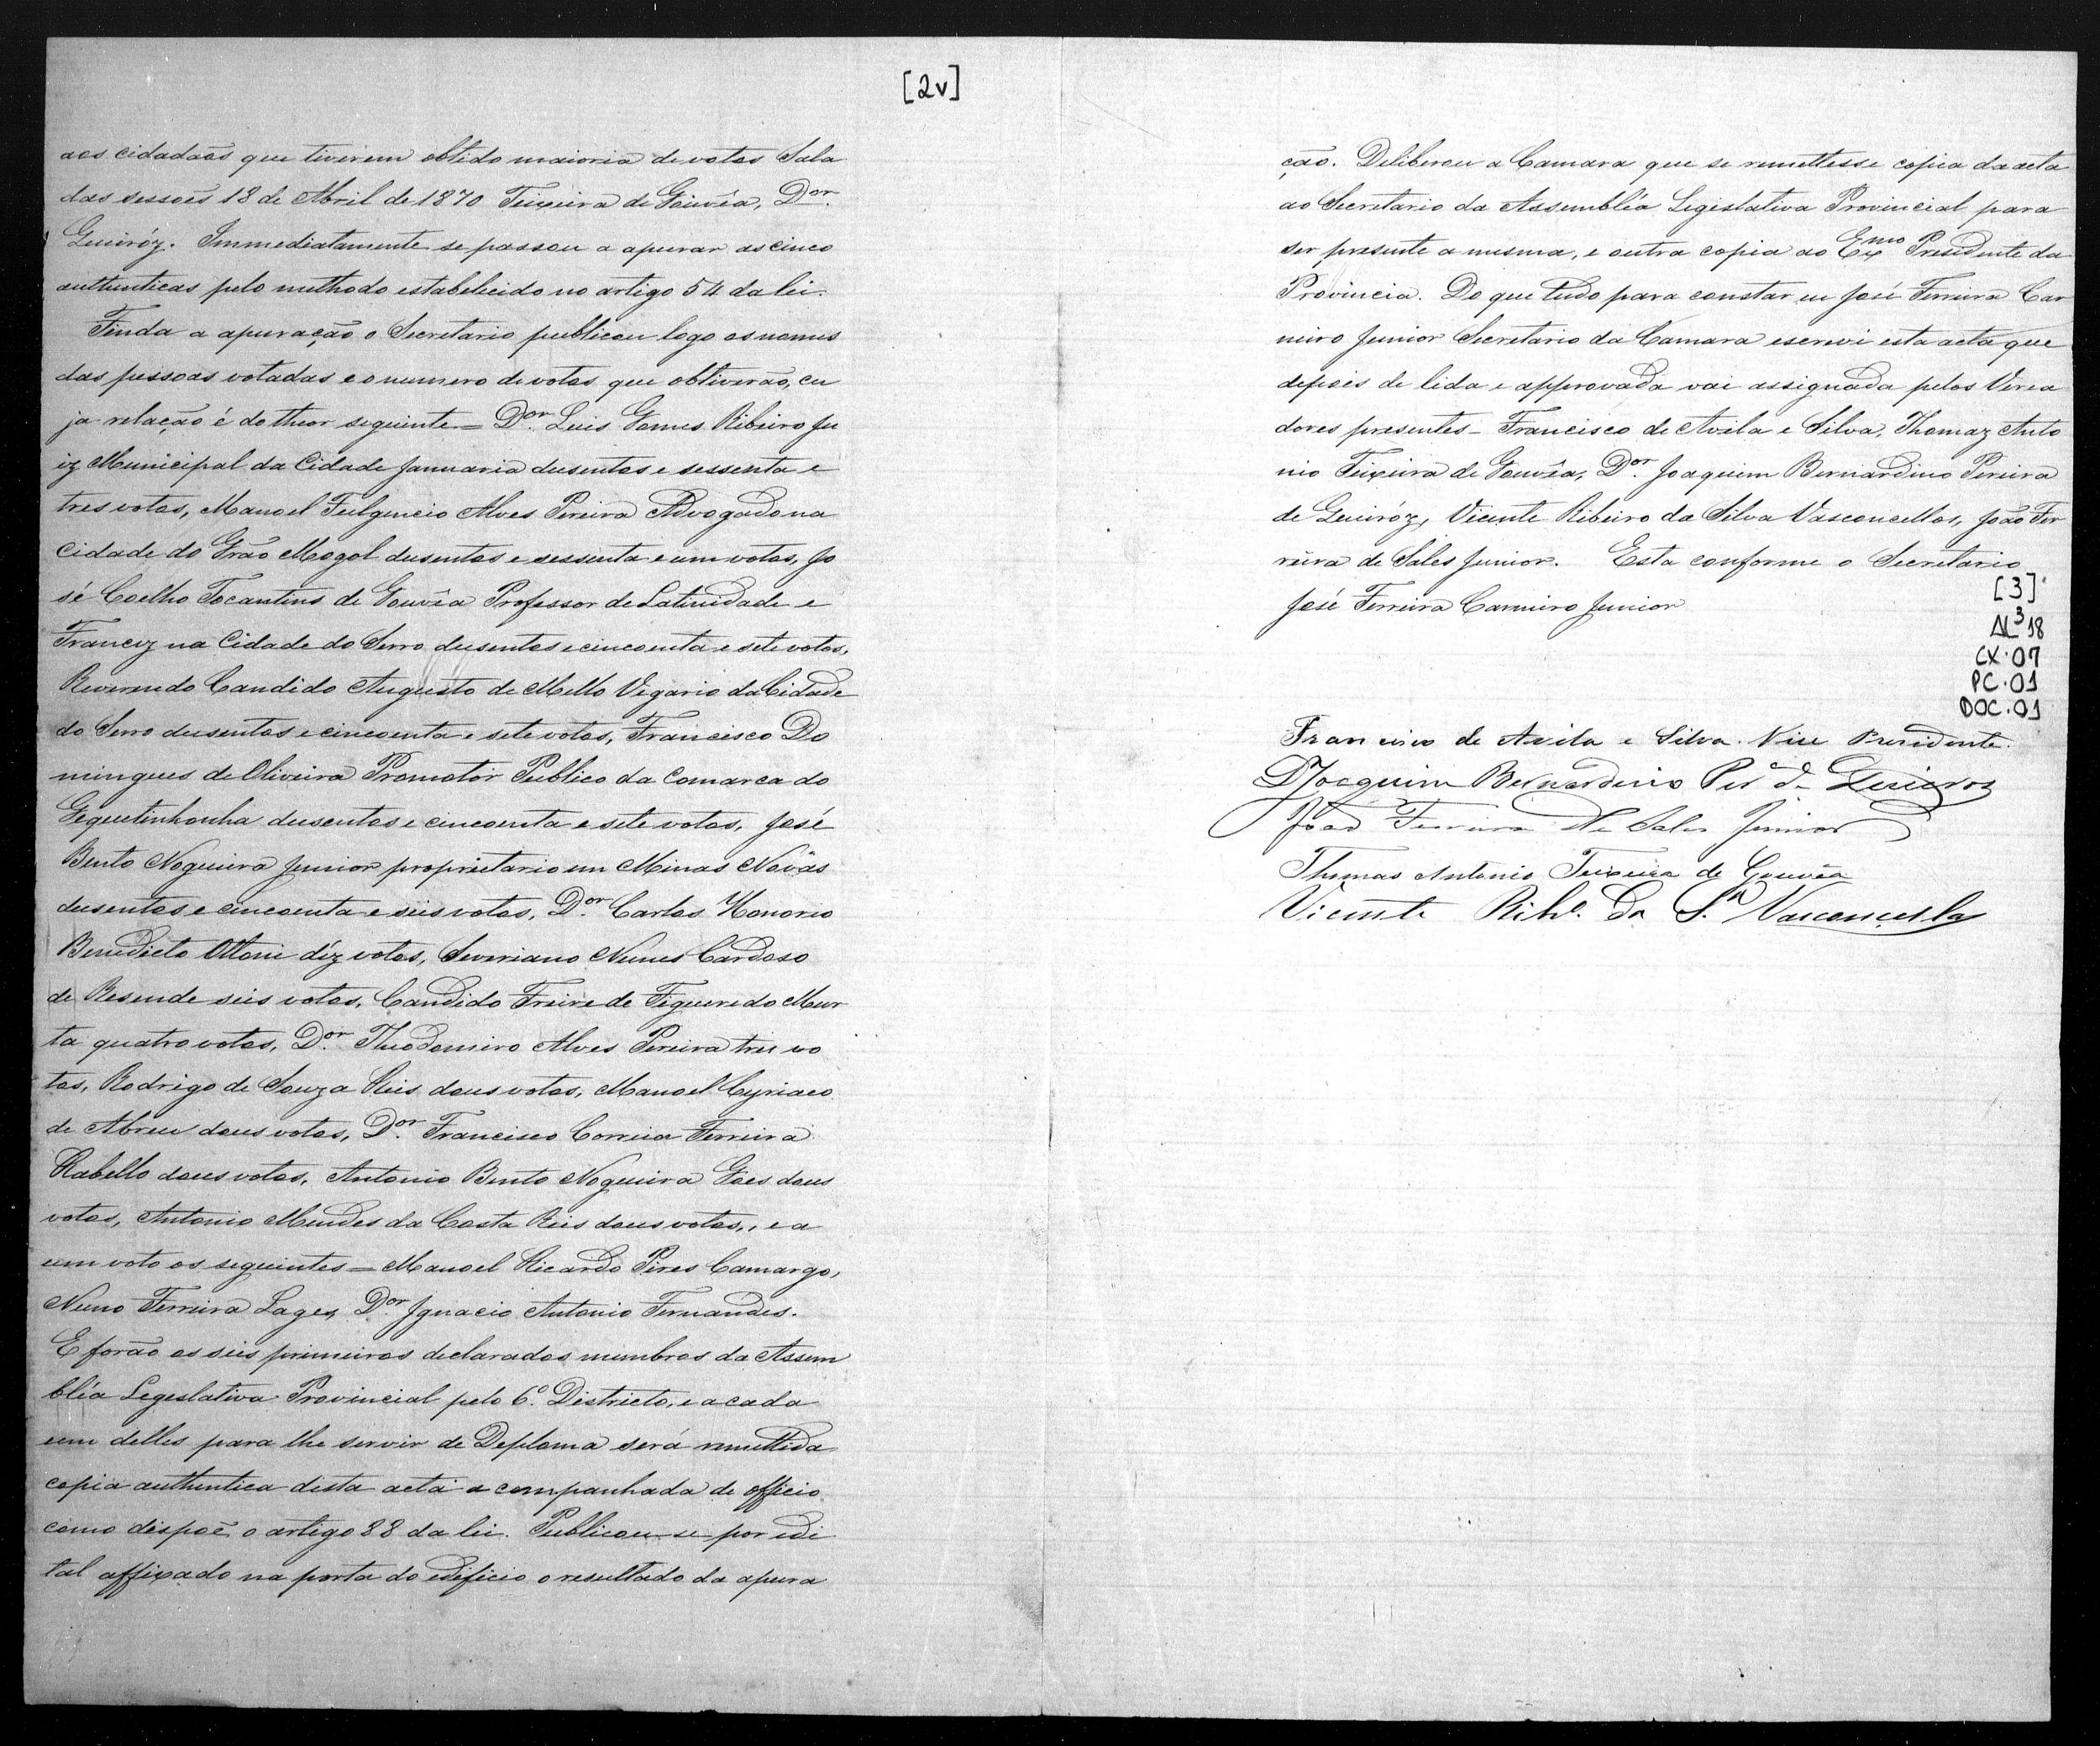 [2v]
aos cidadaõs que tiverem obtido maioria de votos Sala
das sessoēs 18 de Abril de 1870 Teixeira de Gouvêa, Dor.
Queiróz. Immediatamente se passou a apurar as cinco
authenticas pelo methodo estabelecido no artigo 54 da lei.
Finda a apuração o Secretario publicou logo os nomes
das pessoas votadas e o numero de votos que obtiverão, cu
ja relação é do theor seguinte = Dor. Luis Gomes Ribeiro Ju
iz Municipal da Cidade Januaria dusentos e sessenta e
tres votos, Manoel Fulgencio Alves Pereira Advogado na
Cidade do Grão Mogol dusentos e sessenta e um votos, Jo
sé Coelho Tocantins de Gouvêa Professor de Latinidade e
Francez na Cidade do Serro dusentos e cincoenta e sete votos,
Reverendo Candido Augusto de Mello Vigario da Cidade
do Serro dusentos e cincoenta e sete votos, Francisco Do
mingues de Oliveira Promotor Publico da Comarca do
Gequetinhonha dusentos e cincoenta e sete votos, José
Bento Nogueira Junior proprietario em Minas Novas
dusentos e cincoenta e seis votos, Dor. Carlos Honorio
Benedicto Ottoni déz votos, Severiano Nunes Cardoso
de Resende seis votos, Candido Freire de Figueredo Mur
ta quatro votos, Dor. Theodomiro Alves Pereira tres vo
tos, Rodrigo de Souza Reis dous votos, Manoel Cyriaco
de Abreu dous votos, Dor. Francisco Correia Ferreira
Rabello dous votos, Antonio Bento Nogueira Goes dous
votos, Antonio Mendes da Costa Reis dous votos, e a
um voto os seguintes = Manoel Ricardo Pires Camargo,
Nuno Ferreira Lages, Dor. Ignacio Antonio Fernandes.
E forão os seis primeiros declarados membros da Assem
bléa Legeslativa Provincial pelo 6º. Districto, e a cada
um delles para lhe servir de Deploma será remettida
copia authentica desta acta a companhada de officio
como dispoē o artigo 88 da lei. Publicou-se por edi
tal affixado na porta do edificio o resultado da apura
ção. Deliberou a Camara que se remettesse copia da acta
ao Secretario da Assembléa Legislativa Provincial para
ser presente a mesma, e outra copia ao Exmo Presidente da
Provincia. Do que tudo para constar eu José Ferreira Car
neiro Junior Secretario da Camara escrevi esta acta que
depois de lida e approvada vai assignada pelos Verea
dores presentes - Francisco de Avila e Silva, Thomaz Anto
nio Teixeira de Gouvêa, Dor. Joaquim Bernardino Pereira
de Queiróz, Vicente Ribeiro da Silva Vasconcellos, João Fer
reira de Sales Junior. Esta conforme o Secretario
José Ferreira Carneiro Junior
[3]
AL³ 18
CX. 07
PC. 01
DOC. 01
Francisco de Avila e Silva. Vice Presidente.
Dr Joaquim Bernardino Perª de Queiroz
João Ferreira de Sales Junior
Thomas Antonio Teixeira de Gouvêa
Vicente Ribº. da S.ª Vasconcellos